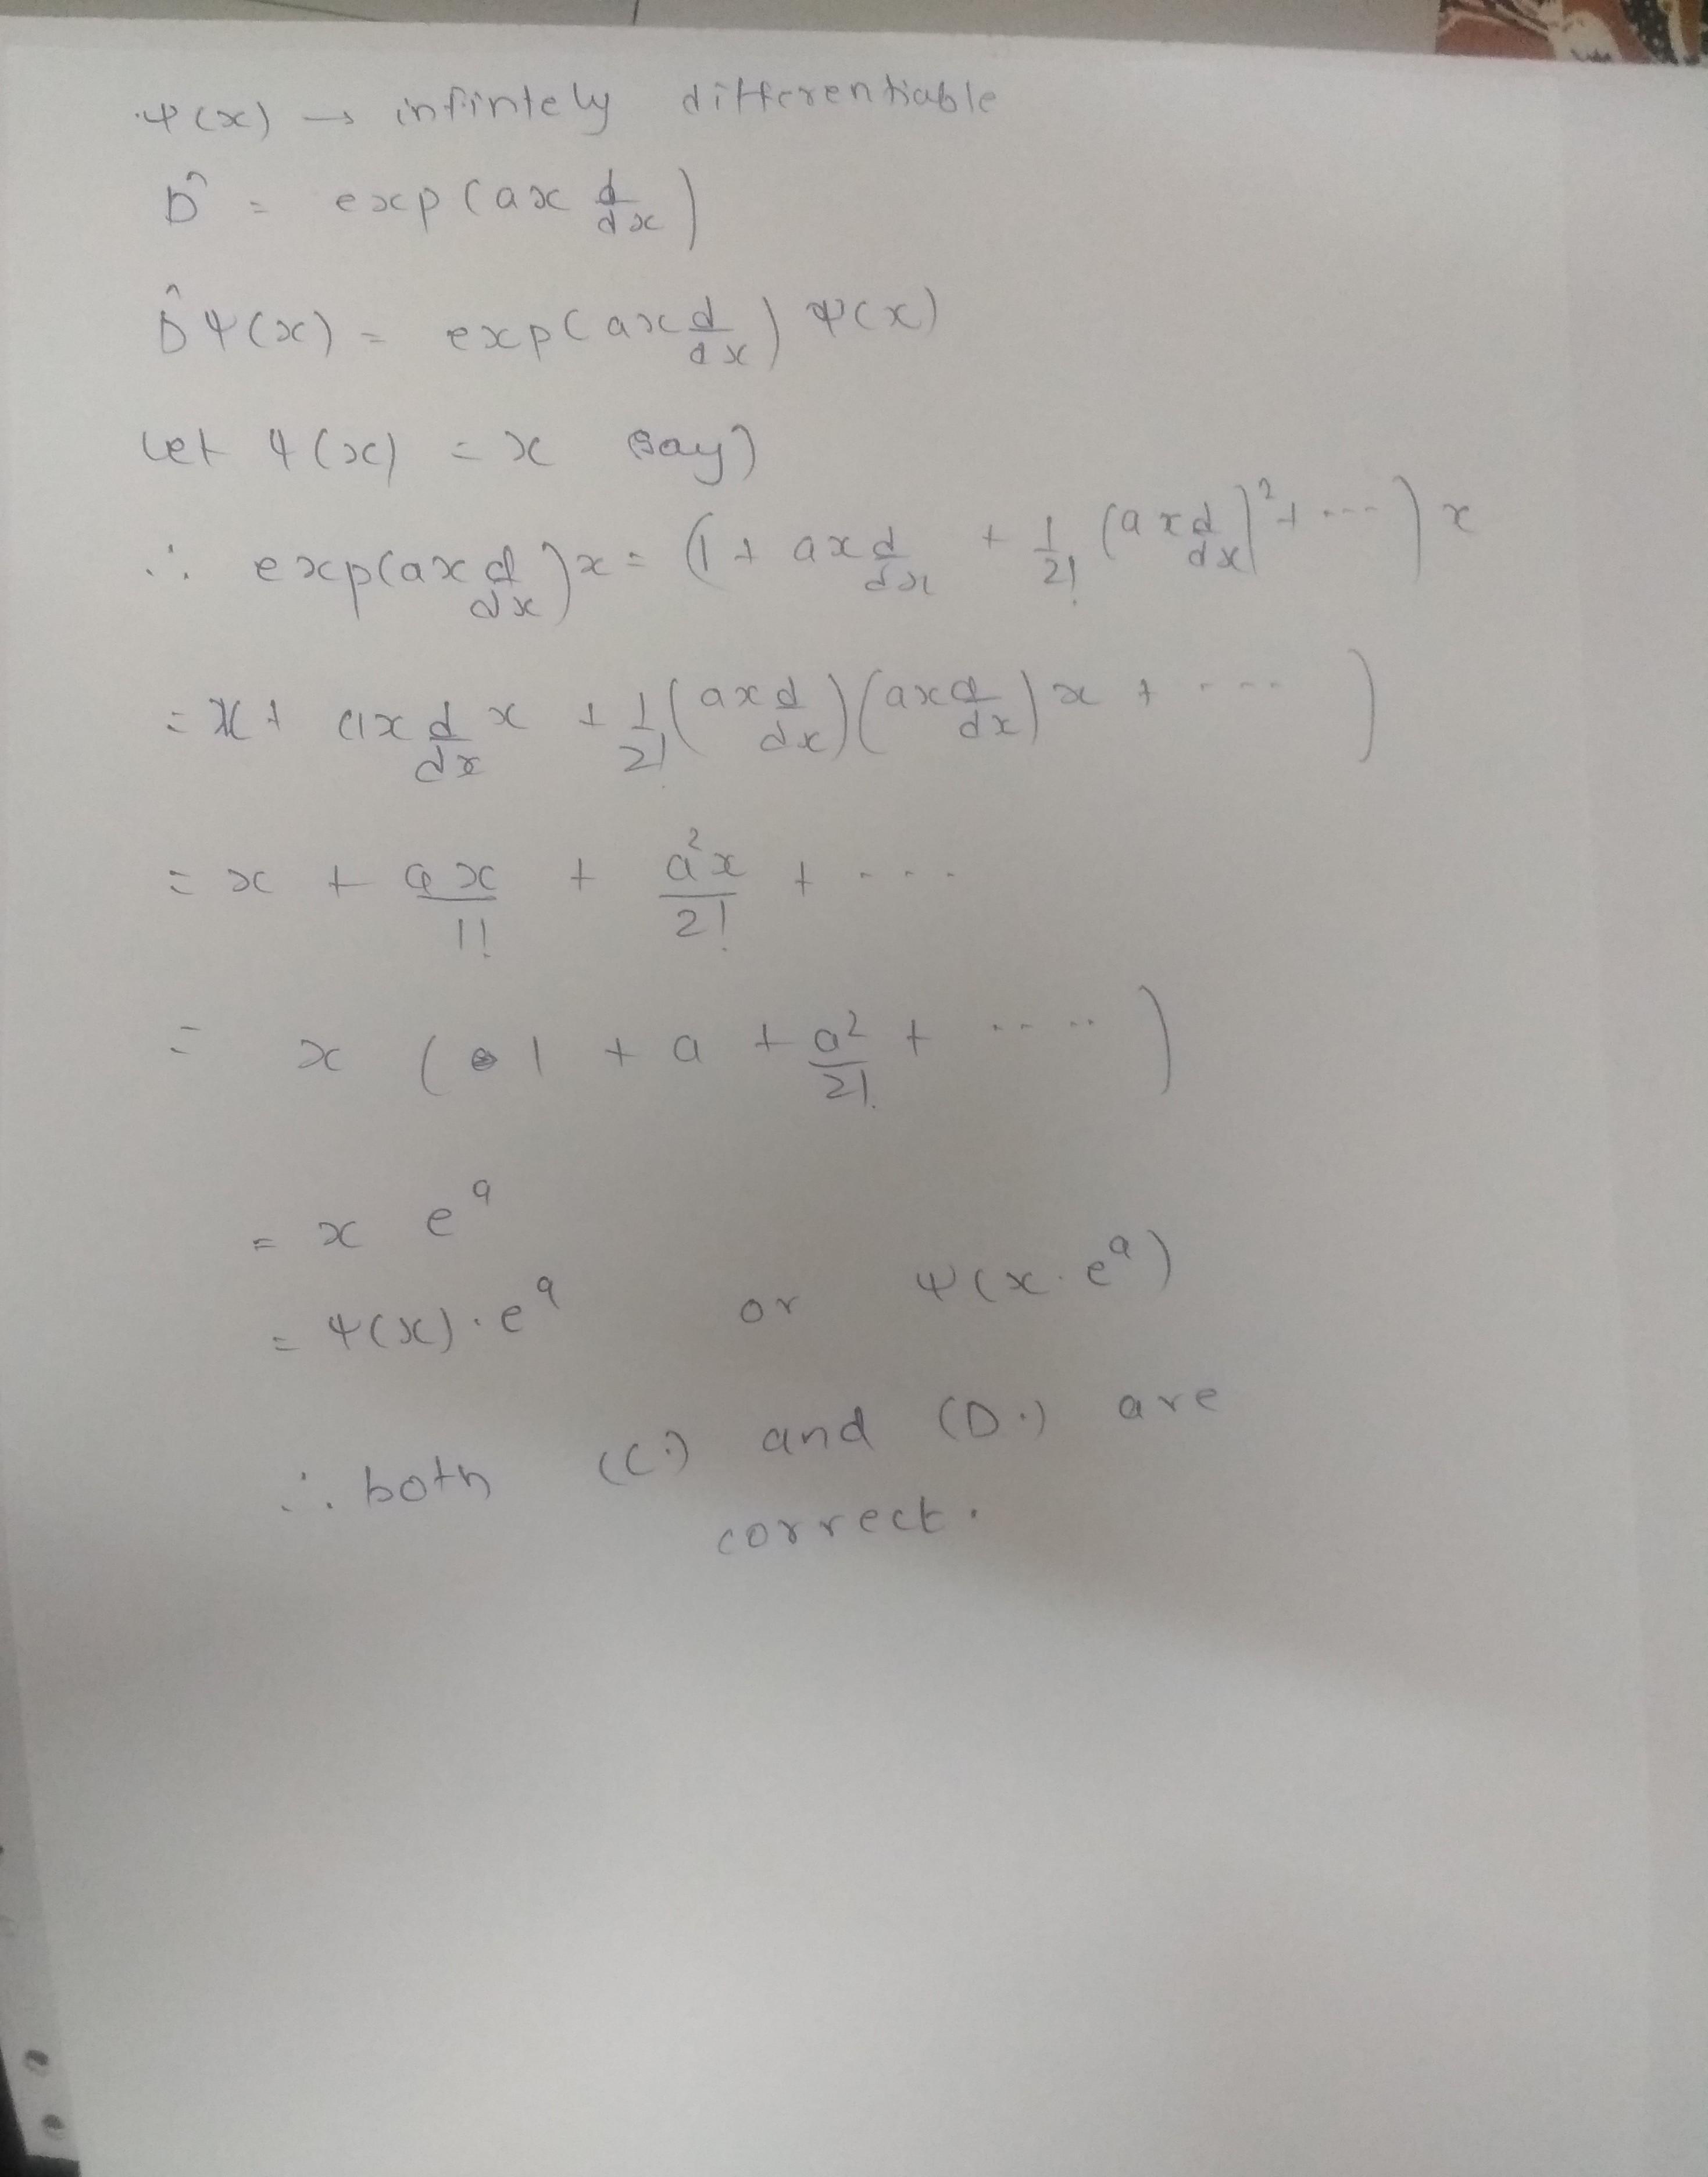 ψ(x) → infintely differentiable
D̂ = exp(ax d/dx)
D̂ψ(x) = exp(ax d/dx) ψ(x)
Let ψ(x) = x (say)
∴ exp(ax d/dx)x = (1 + ax d/dx + 1/2! (ax d/dx)² + ---) x
= x + ax d/dx x + 1/2! (ax d/dx)(ax d/dx) x + ---- )
= x + ax/1! + a²x/2! + ----
= x ( 1 + a + a²/2! + ----- )
= x e^a
= ψ(x)·e^a or ψ(x·e^a)
∴ both (C.) and (D.) are
correct.